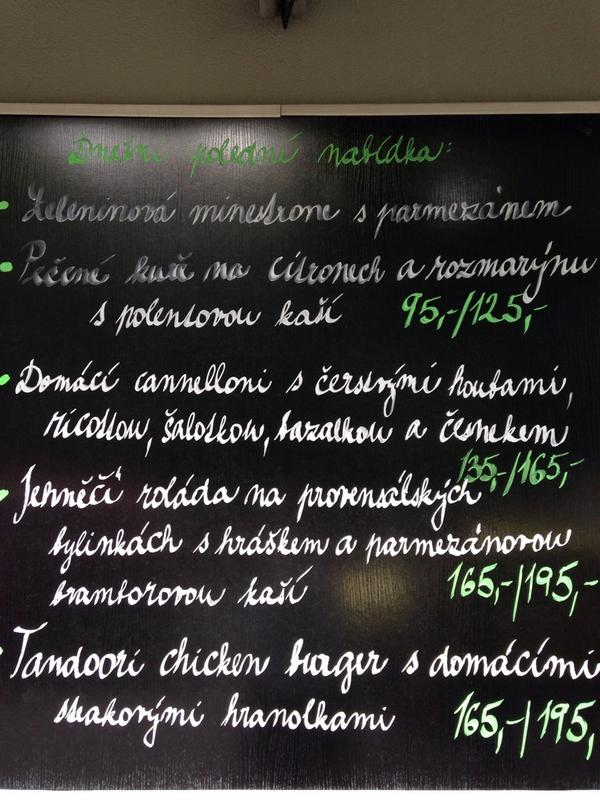 Dnešní polední nabídka:
• Zeleninová minestrone s parmezánem
• Pečené kuře na citronech a rozmarýnu
s polentovou kaší 95,-/125,-
• Domácí cannelloni s čerstvými houbami,
ricottou, šalotkou, bazalkou a česnekem
135,-/165,-
• Jehněčí roláda na provensálských
bylinkách s hráškem a parmezánovou
bramborovou kaší 165,-/195,-
• Tandoori chicken burger s domácími
steakovými hranolkami 165,-/195,